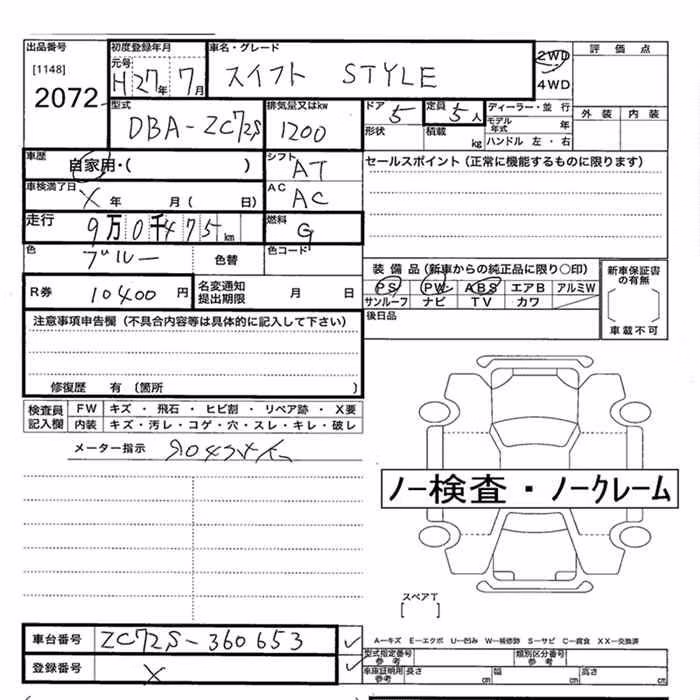 出品番号 初度登録年月 車名・グレード 評価点
[1148] 元号 H27年7月 スイフト STYLE 2WD
2072 4WD
型式 排気量又はkw ドア 定員 ディーラー・並行 外装 内装
DBA-ZC72S 1200 5 5人 モデル年式 年
形状 積載 kg ハンドル 左・右
車歴 自家用・( ) シフト AT セールスポイント(正常に機能するものに限ります)
車検満了日 X 年 月( 日) AC AC
走行 9万0千475km 燃料 G
色 ブルー 色替 色コード
装備品(新車からの純正品に限り○印) 新車保証書の有無
R券 10400円 名変通知提出期限 月 日 PS PW ABS エアB アルミW
サンルーフ ナビ TV カワ
車載不可
注意事項申告欄(不具合内容等は具体的に記入して下さい) 後日品
修復歴 有(箇所 )
検査員記入欄 FW キズ・飛石・ヒビ割・リペア跡・X要
内装 キズ・汚レ・コゲ・穴・スレ・キレ・破レ
メーター指示
ノー検査・ノークレーム
スペアT
[ ]
車台番号 ZC72S-360653
A―キズ E―エクボ U―凹み W―補修跡 S―サビ C―腐食 XX―交換済
型式指定番号 参考 類別区分番号 参考
登録番号 X 車庫証明用 参考 長さ cm 幅 cm 高さ cm